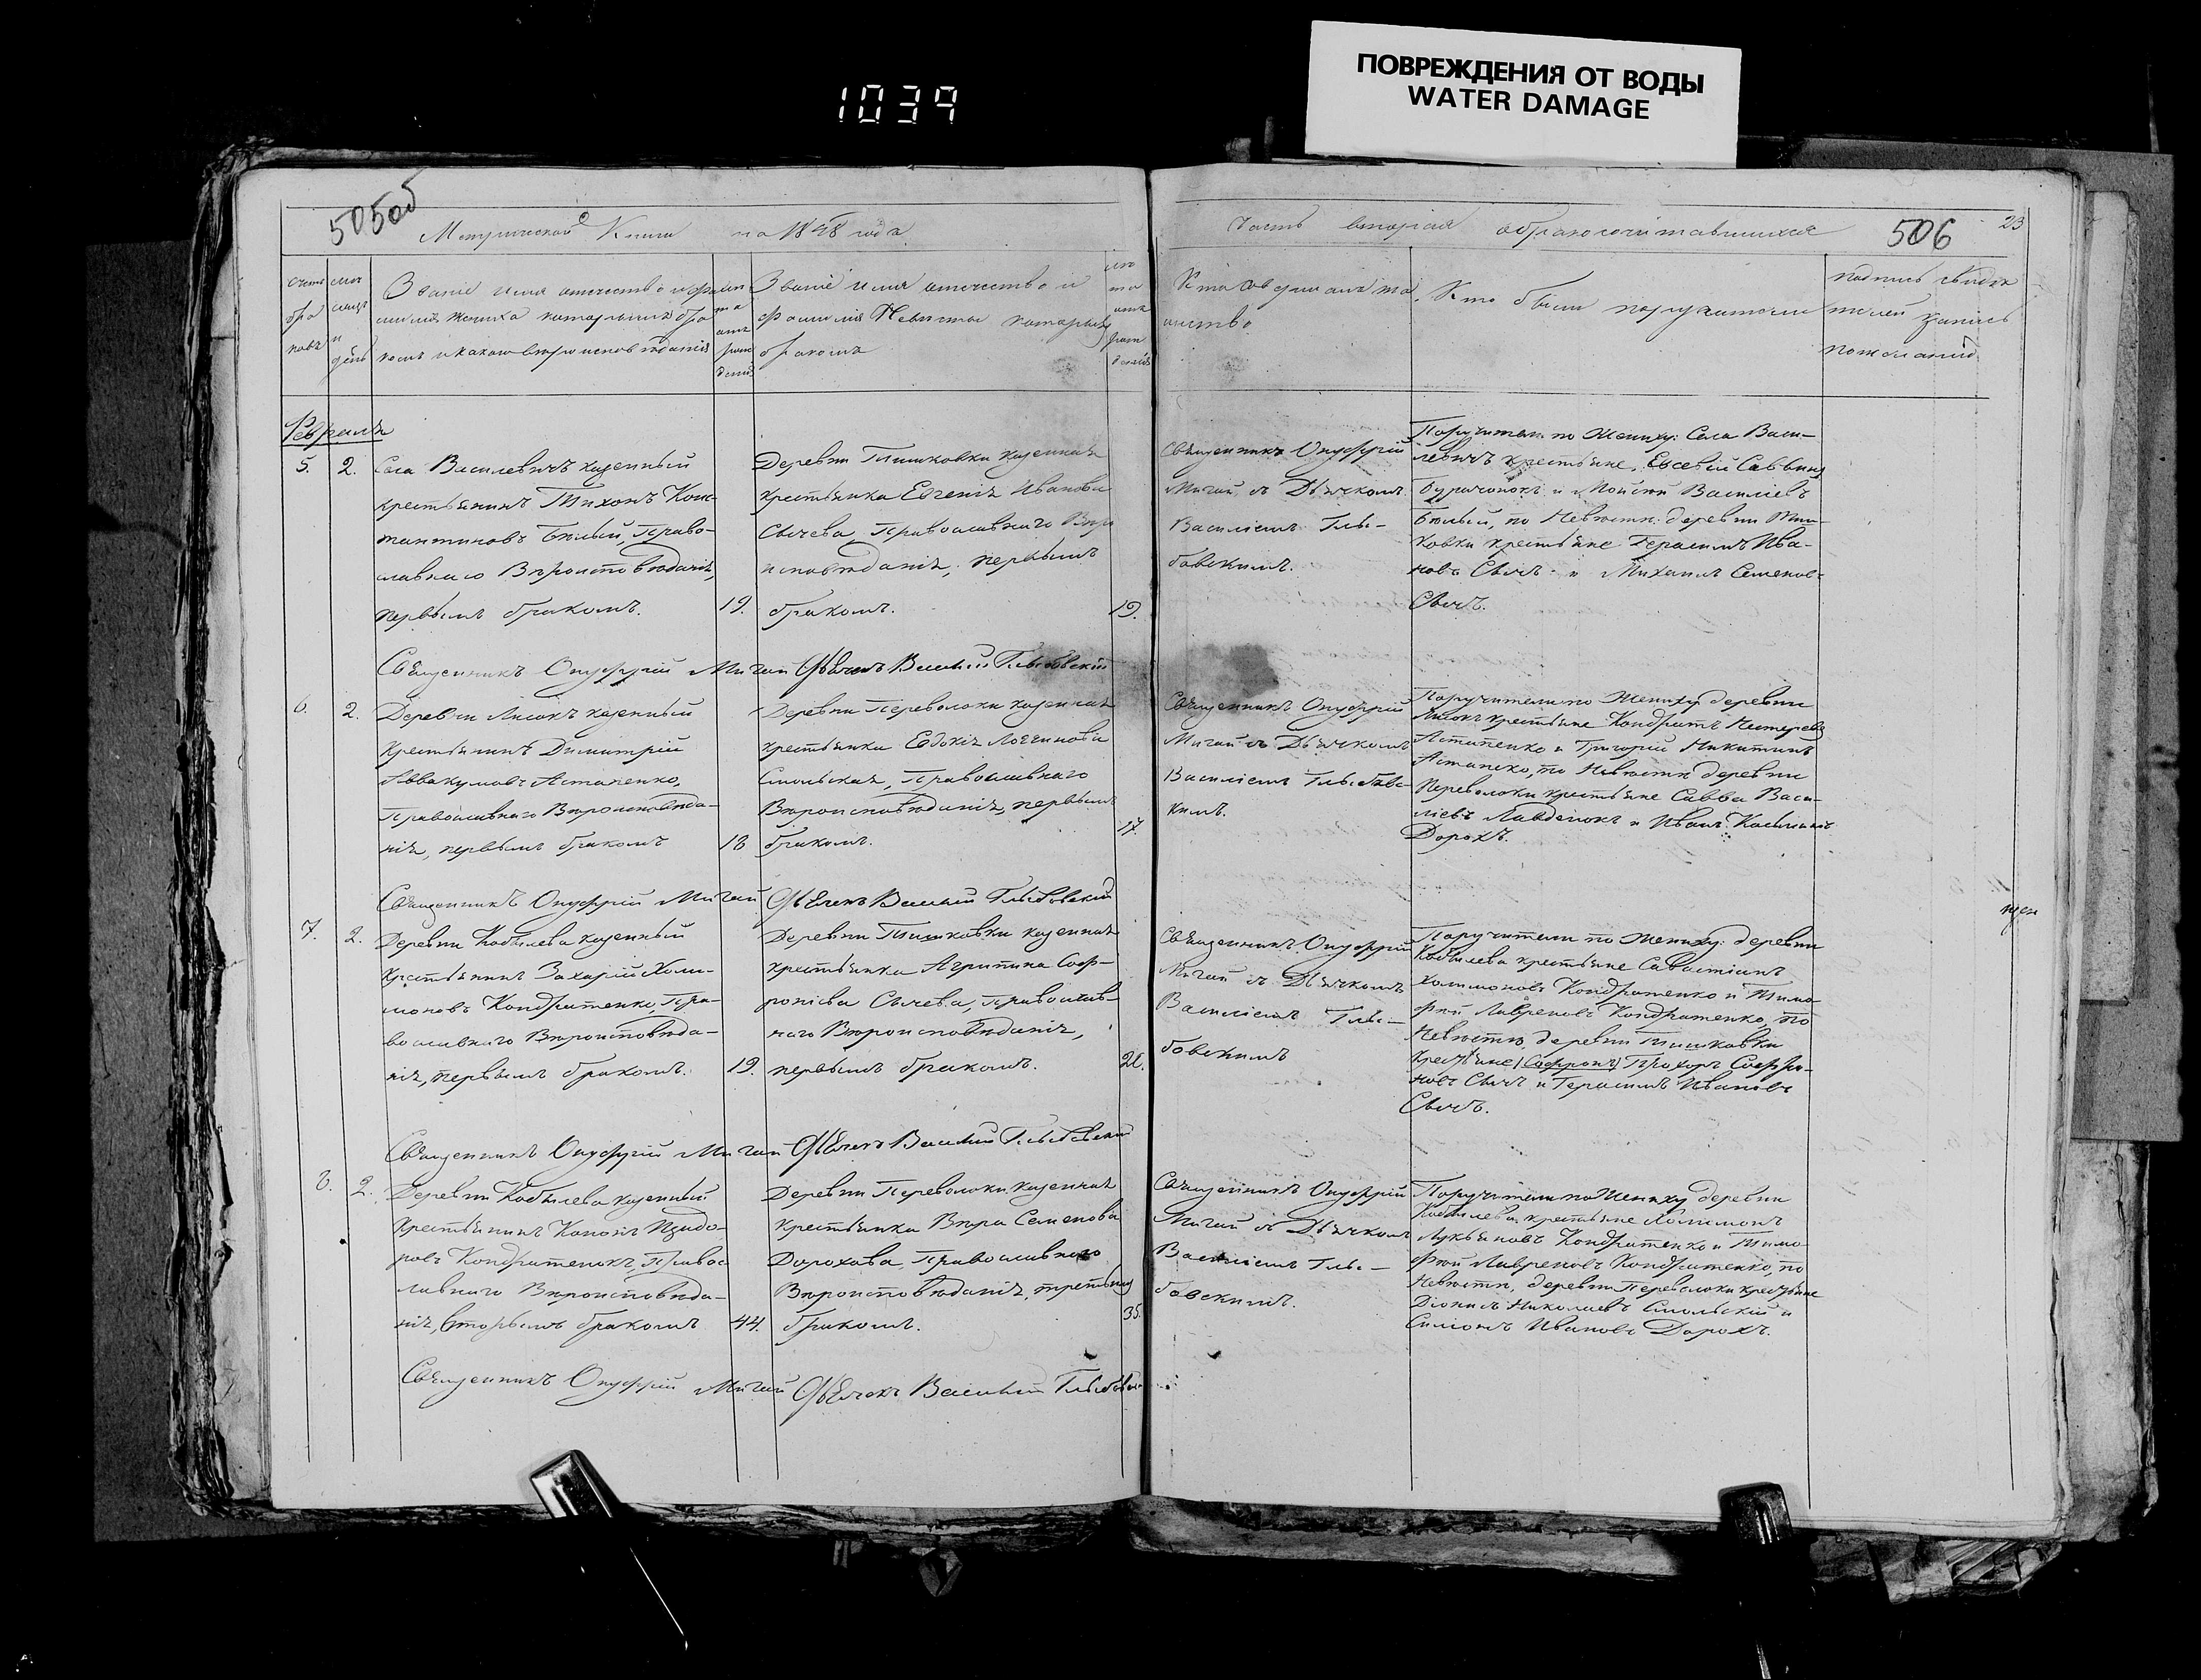 ПОВРЕЖДЕНИЯ ОТ ВОДЫ
WATER DAMAGE
1039
505об
Метрической Книги на 1848 года
Часть вторая о бракосочитавшихся
506
23
Счетъ браковъ
месяцъ и день
Званіе имя отчество и фамилія жениха которымъ бракомъ и какого вероисповеданія
Званіе имя отчество и
фамилія Невесты которымъ
бракомъ
Кто совершалъ таинство
Кто были поручители
подпись свидетелей записи по желанію
Февраль
5. 2.
Села Василевичъ казенный
крестьянинъ Тихонъ Конс-
тантиновъ Белый, Право-
славнаго Вероисповеданія,
первымъ бракомъ. 19.
Деревни Тишковки казенная
крестьянка Евгенія Иванова
Сычева, Православнаго Веро
исповеданія, первымъ
бракомъ. 19.
Священникъ Онуфрій
Мигай съ Дьячкомъ
Василіемъ Глы-
бовскимъ.
Поручители по Жениху: Села Васи-
левичъ крестьяне, Евсевій Саввинъ
и Моисей Василіевъ
Белый, по Невесте: деревни Тиш-
ковки крестьяне Герасимъ Ива-
новъ Сычъ и Михаилъ Семеновъ
Сычъ.
Священникъ Онуфрій Мигай Дьячекъ Василій Глыбовскій
6. 2.
Деревни Лисокъ казенный
крестьянинъ Димитрій
Аввакумовъ Астапенко,
Православнаго Вероисповеда-
нія, первымъ бракомъ 18
Деревни Переволоки казенная
крестьянка Евдокія Логгинова
Смольская, Православнаго
Вероисповеданія, первымъ
бракомъ. 17.
Священникъ Онуфрій
Мигай съ Дьячкомъ
Василіемъ Глыбовс-
кимъ.
Поручители по Жениху деревни
Лисокъ крестьяне Кондратъ Нестеровъ
Астапенко и Григорій Никитинъ
Астапенко, по Невесте деревни
Переволоки крестьяне Савва Васи-
ліевъ и Иванъ
Дорохъ.
Священникъ Онуфрій Мигай Дьячекъ Василій Глыбовскій
7. 2.
Деревни Кобылева казенный
Крестьянинъ Захарій Холи-
моновъ Кондратенко, Пра-
вославнаго Вероисповеда-
нія, первымъ бракомъ. 19.
Деревни Тишковки казенная
крестьянка Агрипина Соф-
роніева Сычева, Православ-
наго Вероисповеданія,
первымъ бракомъ.
Священникъ Онуфрій
Мигай съ Дьячкомъ
Василіемъ Глы-
бовскимъ
Поручители по Жениху: деревни
Кобылева крестьяне Савостіанъ
Холимоновъ Кондратенко и Тимо-
фей Лавреновъ Кондратенко, по
Невесте, деревни Тишковки
крестьяне (Софронъ) Прохоръ Софро-
новъ Сычъ и Герасимъ Ивановъ
Сычъ.
Священникъ Онуфрій Мигай Дьячекъ Василій Глыбовскій
8. 2.
Деревни Кобылева казенный
Крестьянинъ Кононъ Изидо-
ровъ Кондратенокъ, Правос
лавнаго Вероисповеда-
нія, вторымъ бракомъ 44.
Деревни Переволоки казенная
крестьянка Вера Семенова
Дорохова, Православнаго
Вероисповеданія, третьимъ
бракомъ. 35.
Священникъ Онуфрій
Мигай съ Дьячкомъ
Василіемъ Глы-
бовскимъ.
Поручители по Жениху деревни
Кобылева, крестьяне Холимонъ
Лукьяновъ Кондратенко и Тимо-
фей Лавреновъ Кондратенко, по
Невесте, деревни Переволоки крестьяне
Діонисъ Николаевъ Смольскій и
Симонъ Ивановъ Дорохъ.
Священникъ Онуфрій Мигай Дьячекъ Василій